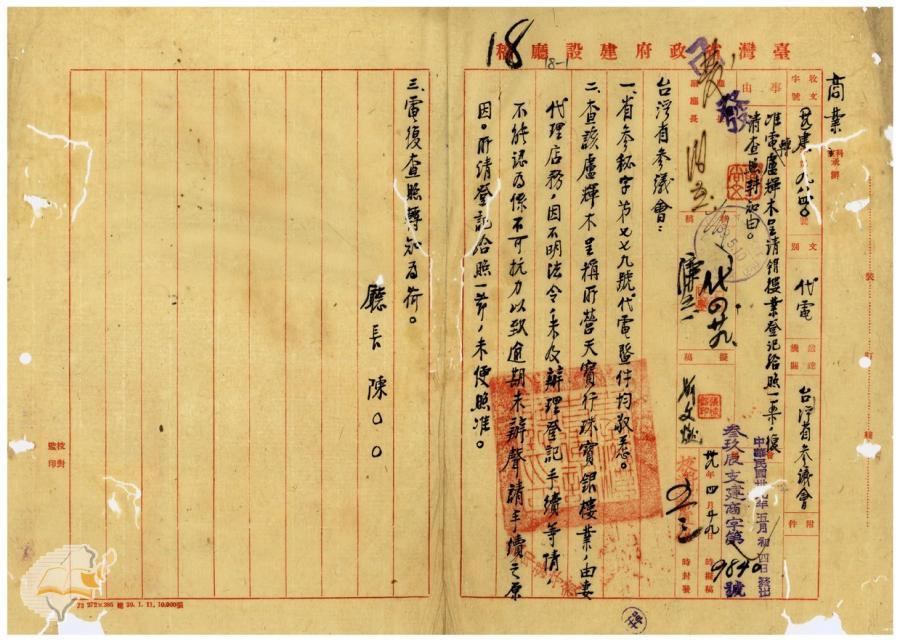 臺灣省政府建設廳稿
18
18-1
商業
科承辦
收文
字號
事由
准電盧輝木呈請銀樓業登記給照一案，復
請查照轉知由。
文別
代電
送達機關
台灣省參議會
附件
廳長
稿
擬稿
代 四 廿九
中華民國卅九年五月初四日發出
叁玖辰支建商字第9840號
卅九年四月廿九日
時擬稿
時封發
台灣省參議會：
一、省參秘字第七七九號代電暨件均敬悉。
二、查該盧輝木呈稱所營天寶行珠寶銀樓業，由妻
代理店務，因不明法令，未及辦理登記手續等情，
不能認為係不可抗力以致逾期未辦聲請手續之原
因。所請登記給照一節，未便照准。
三、電復查照轉知為荷。
廳長 陳○○
校對
監印
裝
訂
線